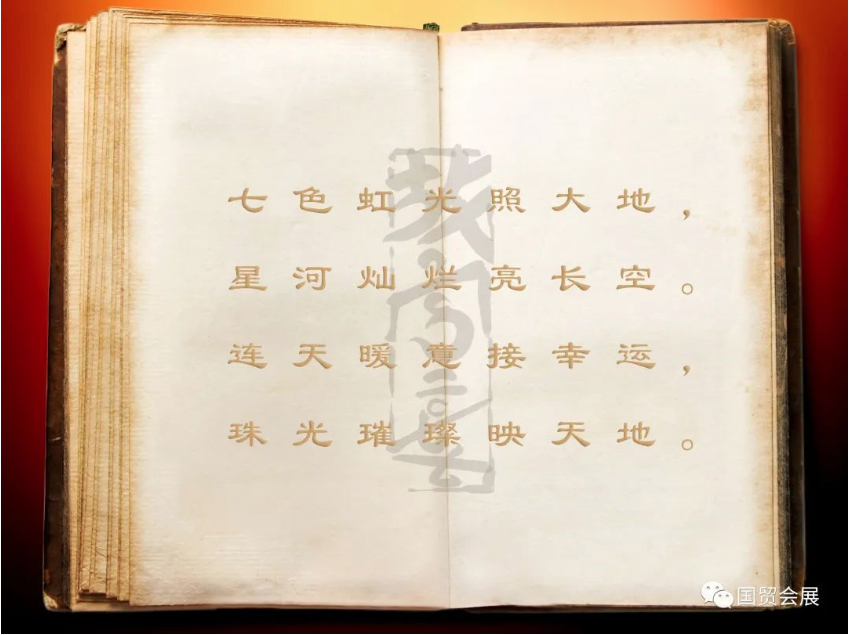 七色虹光照大地，
星河灿烂亮长空。
连天暖意接幸运，
珠光璀璨映天地。
国贸会展